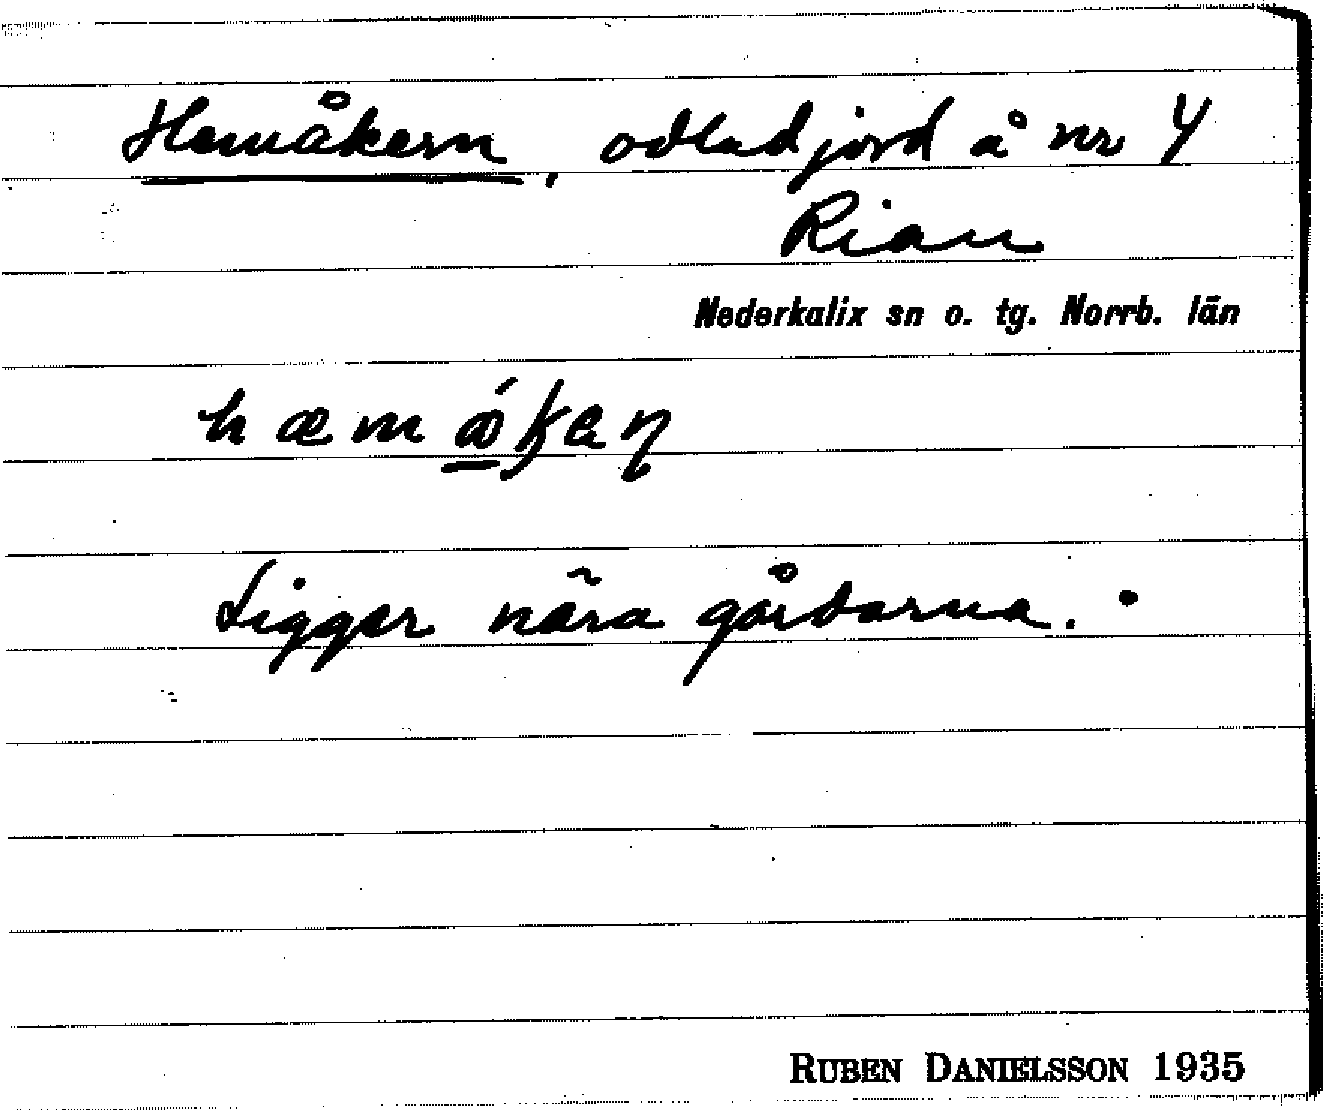 Hemåkern, odlad jord å nr 4
Rian
Nederkalix sn o. tg. Norrb. län
Ligger nära gårdarna.
RUBEN DANIELSSON 1935